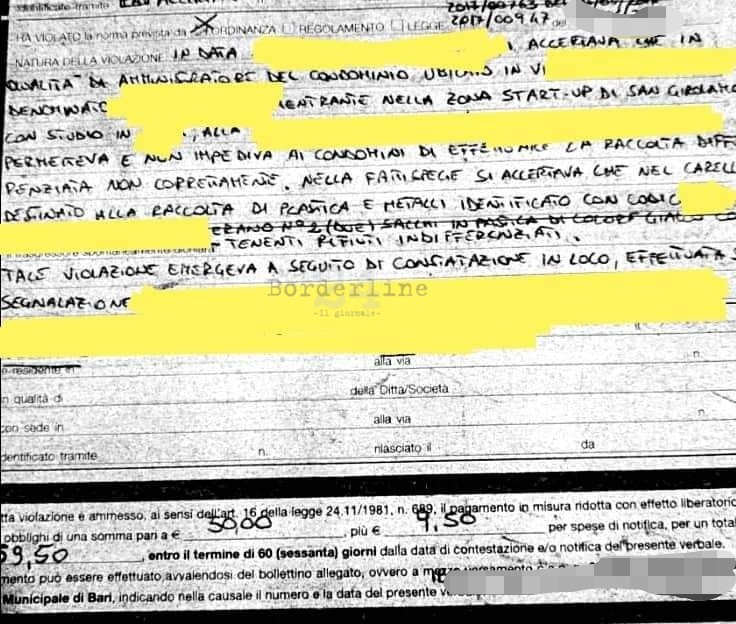 Identificato tramite
2017/00763 DEL
HA VIOLATO la norma prevista da ORDINANZA REGOLAMENTO LEGGE 2017/00947 del
NATURA DELLA VIOLAZIONE IN DATA ACCERTAVA CHE IN
QUALITÀ DI AMMINISTRATORE DEL CONDOMINIO UBICATO IN VI
DENOMINATO RIENTRANTE NELLA ZONA START-UP DI SAN GIROLAMO
CON STUDIO IN , ALLA
PERMETTEVA E NON IMPEDIVA AI CONDOMINI DI EFFETTUARE LA RACCOLTA DIFFE
RENZIATA NON CORRETTAMENTE. NELLA FATTISPECIE SI ACCERTAVA CHE NEL CARELL
DESTINATO ALLA RACCOLTA DI PLASTICA E METALLI IDENTIFICATO CON CODIC
ERANO N°2 (DUE) SACCHI IN PLASTICA DI COLORE GIALLO CO
TENENTI RIFIUTI INDIFFERENZIATI.
TALE VIOLAZIONE EMERGEVA A SEGUITO DI CONSTATAZIONE IN LOCO, EFFETTUATA S
SEGNALAZIONE
Borderline
24
-Il giornale-
il
o residente in alla via n.
in qualità di della Ditta/Società
con sede in alla via n.
identificato tramite n. rilasciato il da
tta violazione è ammesso, ai sensi dell'art. 16 della legge 24.11/1981, n. 689, il pagamento in misura ridotta con effetto liberatorio
obblighi di una somma pari a € 50,00, più € 9,50 per spese di notifica, per un total
59,50, entro il termine di 60 (sessanta) giorni dalla data di contestazione e/o notifica del presente verbale.
mento può essere effettuato avvalendosi del bollettino allegato, ovvero a mezzo versamento
Municipale di Bari, indicando nella causale il numero e la data del presente